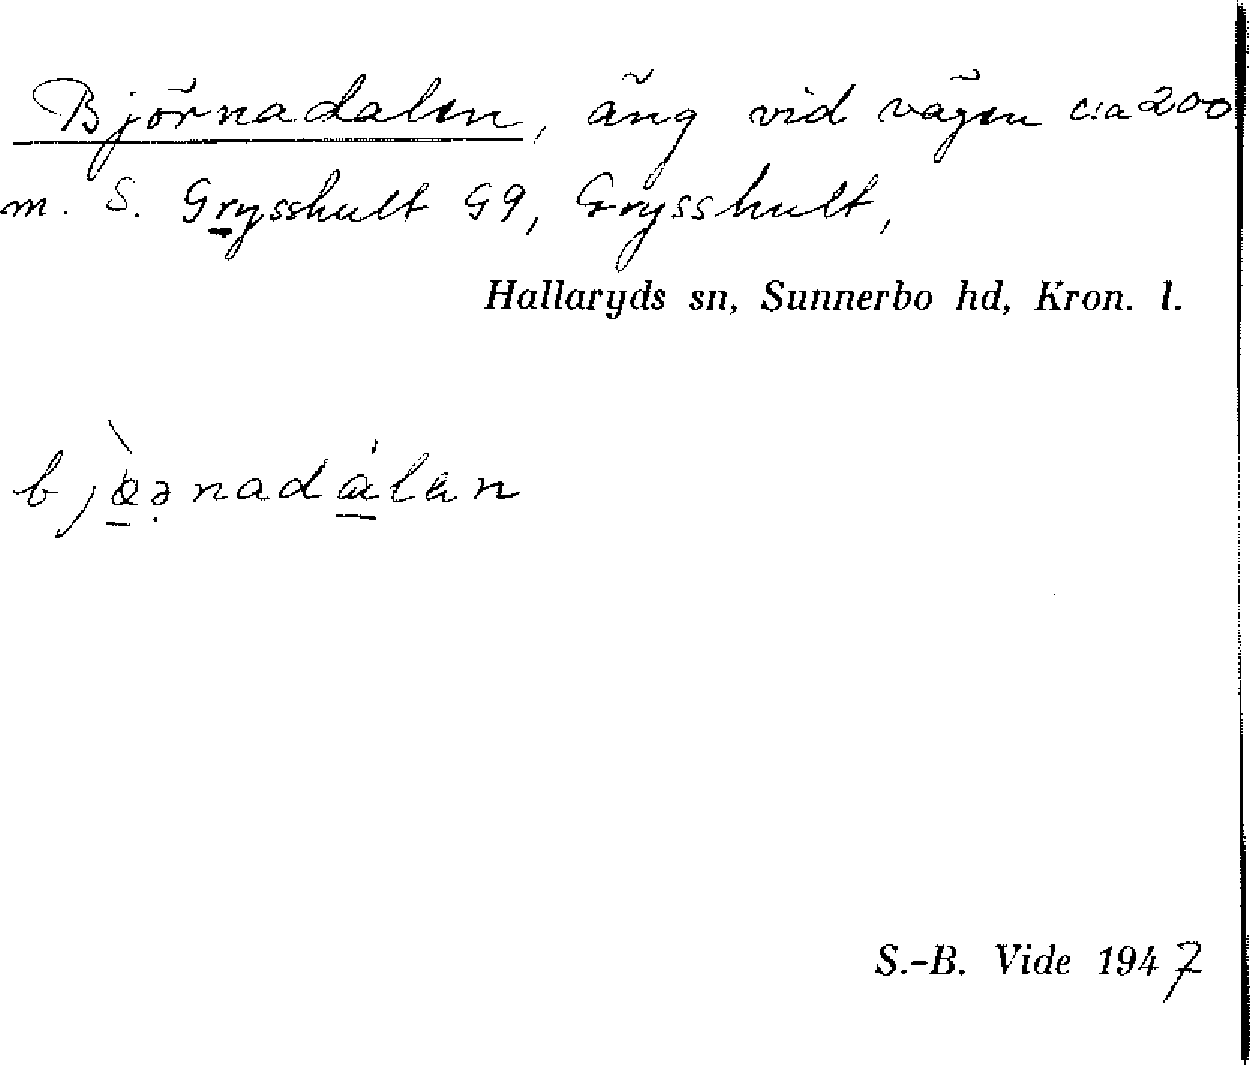 Björnadalen, äng vid vägen c:a 200
m. S. Grysshult G9, Grysshult,
Hallaryds sn, Sunnerbo hd, Kron. l.
bjœ̀ənadálan
S.-B. Vide 1947